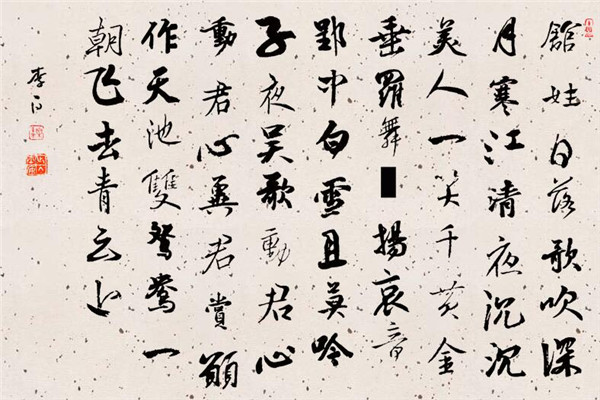 舘娃日落歌吹深
月寒江清夜沉沉
美人一笑千黄金
垂羅舞揚哀音
郢中白雪且莫吟
子夜吴歌動君心
動君心冀君賞願
作天池雙鴛鴦一
朝飞去青云上
李白